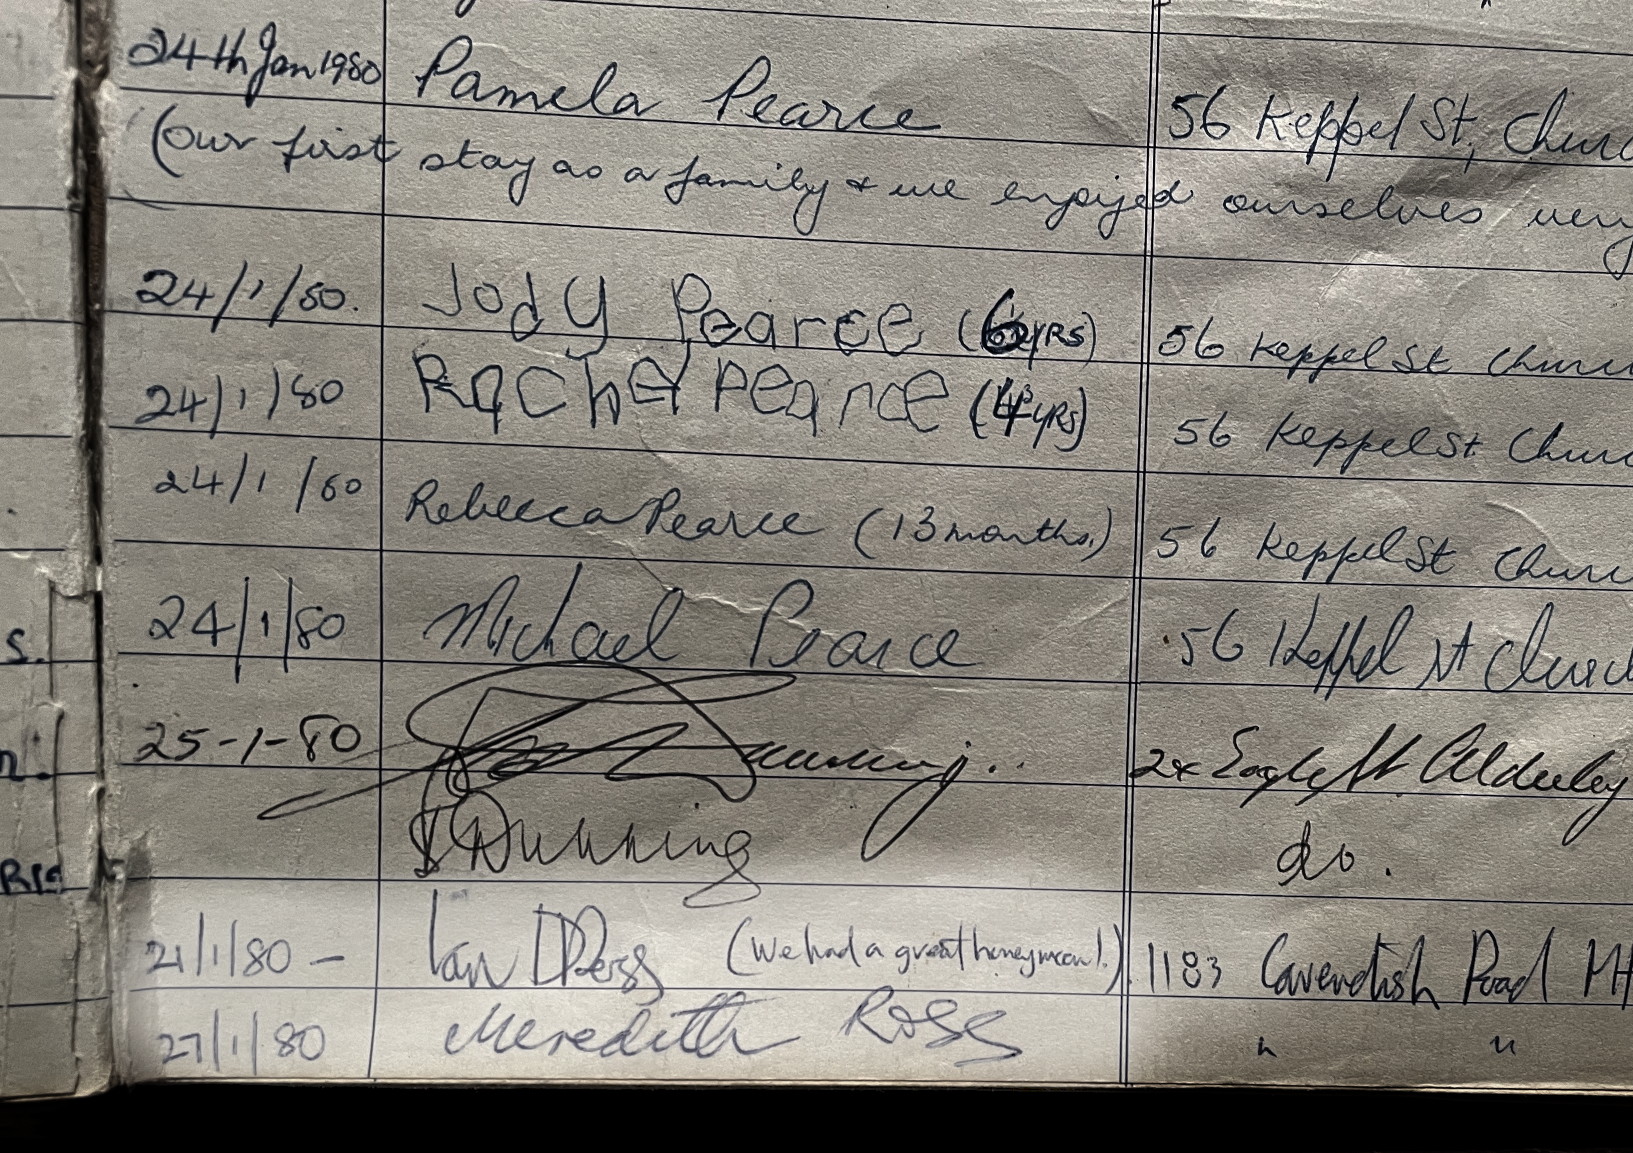 24th Jan 1980 Pamela Pearce 56 Keppel St, Churc
(Our first stay as a family & we enjoyed ourselves very
24/1/80. Jody Pearce (6yrs) 56 Keppel St Churc
24/1/80 Rachel Pearce (4yrs) 56 Keppel St Churc
24/1/80 Rebecca Pearce (13 months.) 56 Keppel St Churc
s. 24/1/80 Michael Pearce 56 Keppel St Church
n. 25-1-80 2x Eagle St. Alderley
Dunning do.
21/1/80 - Ian D Ross (We had a great honeymoon!.) 1183 Cavendish Road Mt
27/1/80 Meredith Ross " "